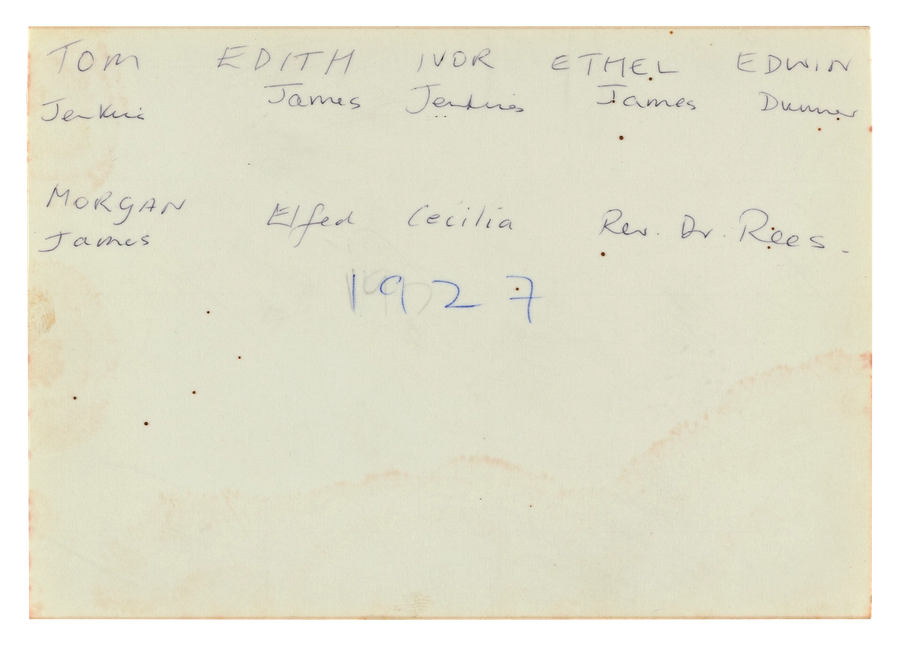 TOM EDITH IVOR ETHEL EDWIN
Jenkins James Jenkins James
MORGAN Elfed Cecilia Rev. Dr. Rees.
James
1927